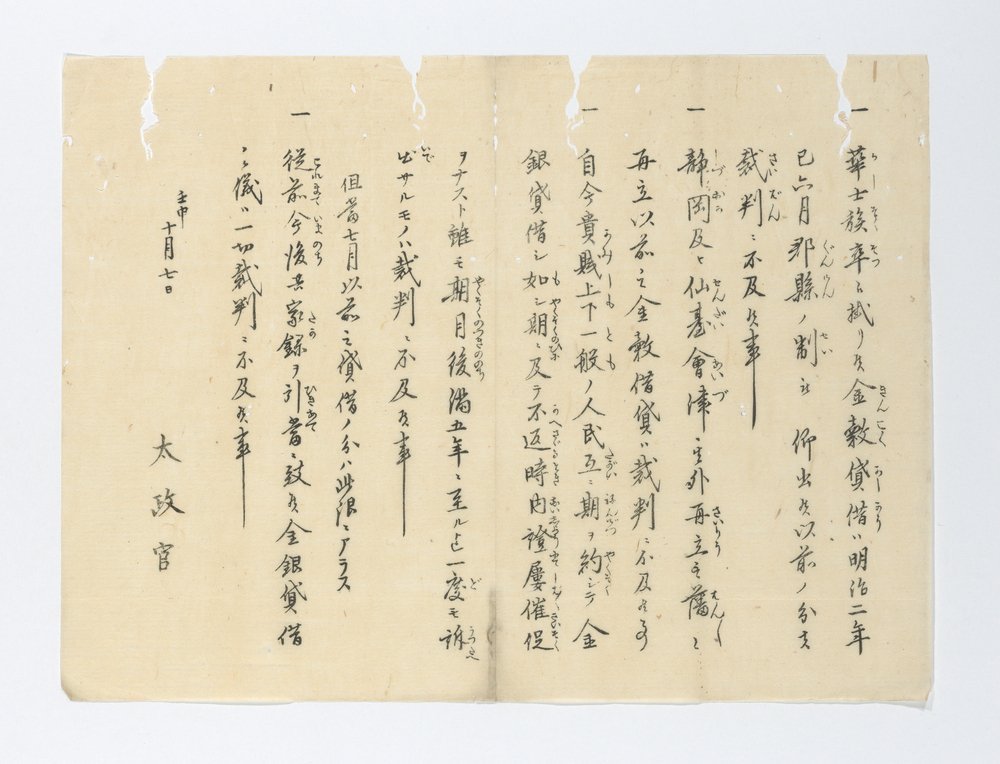 一 華士族卒ニ拂リ候金穀貸借ハ明治二年
己六月 郡縣ノ制被 仰出候以前ノ分者
裁判ニ不及候事
一 静岡及ヒ仙臺會津之外再立之藩々
再立以前之金穀借貸ハ裁判ニ不及候事
一 自今貴賎上下一般ノ人民互ニ期ヲ約シテ金
銀貸借シ如シ期ニ及テ不返時内證屡催促
ヲナスト雖モ期月後満五年ニ至ル迄一度モ訴
出サルモノハ裁判ニ不及候事
但當七月以前之貸借ノ分ハ此限ニアラス
一 従前今後共家録ヲ引當ニ致候金銀貸借
之儀ハ一切裁判ニ不及候事
壬申
十月七日
太政官